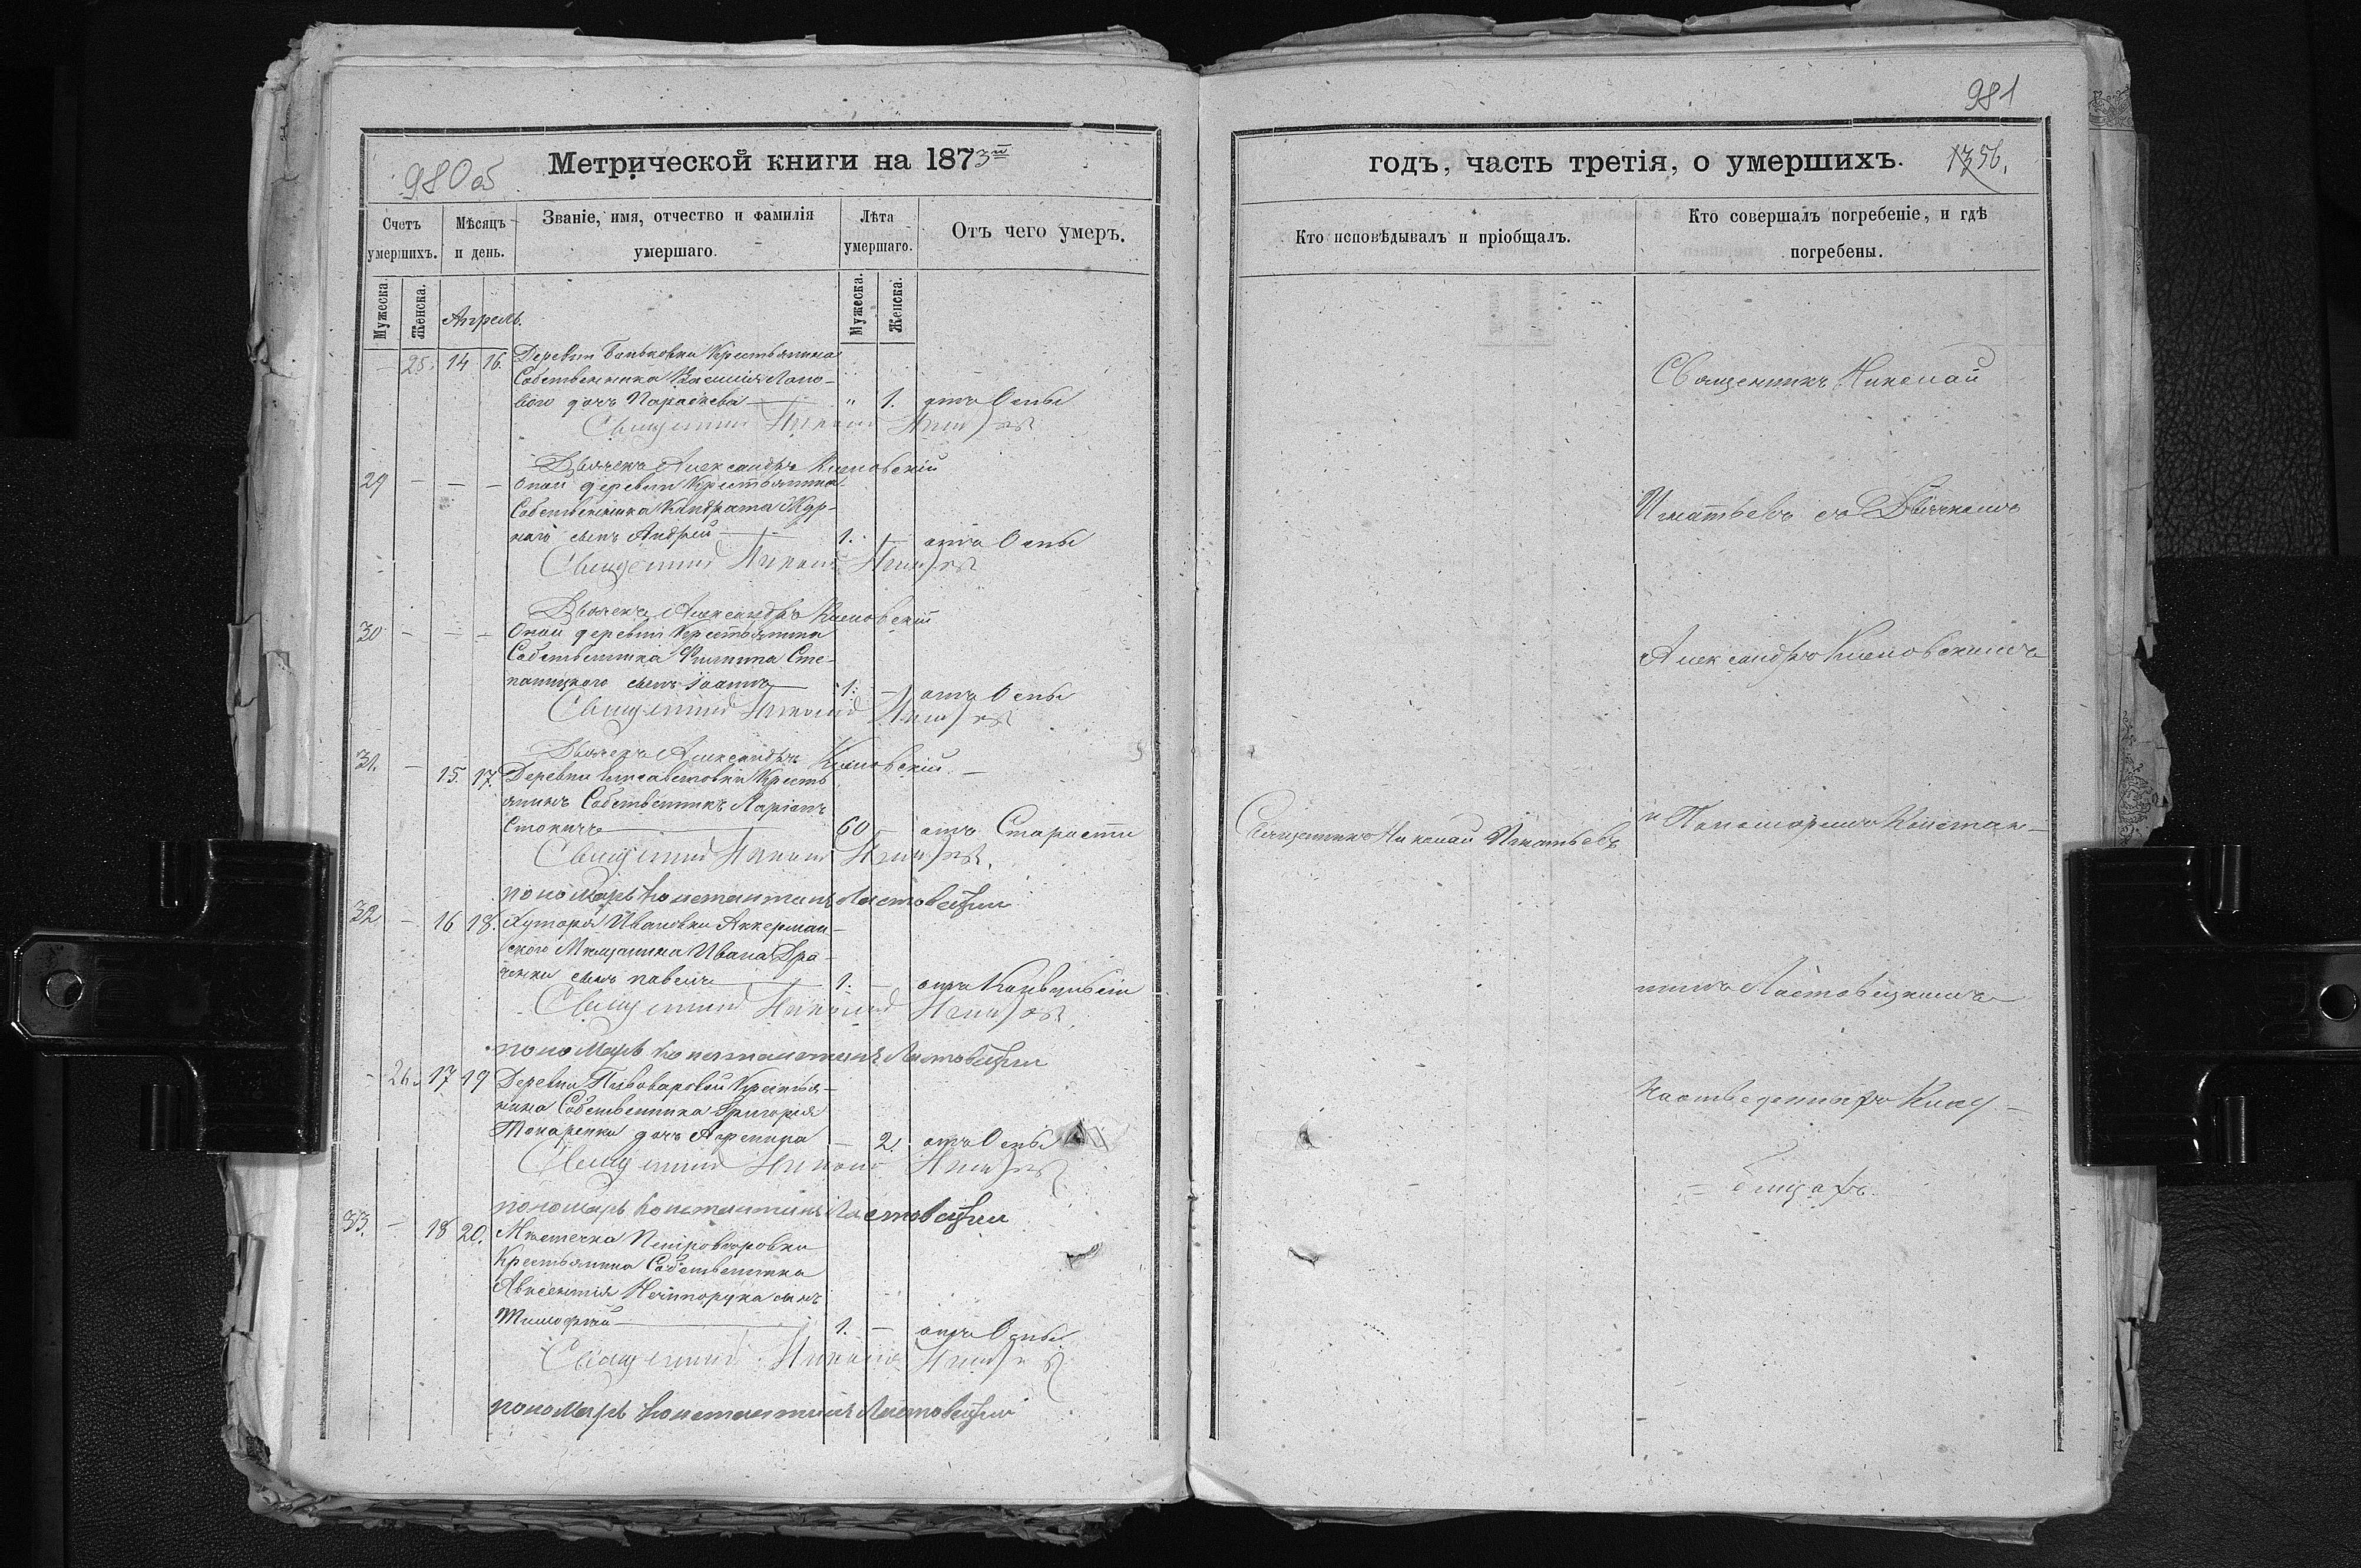 980 об
Метрической книги на 1873й
Счетъ умершихъ.
Мѣсяцъ и день.
Званіе, имя, отчество и фамилія умершаго.
Лѣта умершаго.
Отъ чего умеръ.
Мужеска.
Женска.
Апрель.
Мужеска.
Женска.
— 25. 14 16. Деревни Баньковки Крестьянина
Собственника Василія Лапо-
ваго дочь Параскева — " 1. отъ Оспы
Священникъ Николай Игнатьевъ
Дьячекъ Александръ Климовскій
29 — — — Оной деревни Крестьянина
Собственника Кондрата
наго сынъ Андрей — 1. — отъ Оспы
Священникъ Николай Игнатьевъ
Дьячекъ Александръ Климовскій
30 — — — Оной деревни Крестьянина
Собственника Филипа Сте-
паницкого сынъ Іоаннъ — 1. — отъ Оспы
Священникъ Николай Игнатьевъ
Дьячекъ Александръ Климовскій
31. — 15. 17. Деревни Елисаветовки Кресть
янинъ Собственникъ Ларіонъ
— 60 — отъ Старости
Священникъ Николай Игнатьевъ
пономарь Константинъ Ластовецкий
32 — 16 18. Хутора Ивановки Аккерман-
ского Мещанина Ивана Дра-
ченки сынъ павелъ — 1. — отъ Конвульсіи
Священникъ Николай Игнатьевъ
пономарь Константинъ Ластовецкий
— 26. 17 19 Деревни Пивоваровки Крестья-
нина Собственника Григорія
Токаренки дочь — 2. отъ Оспы
Священникъ Николай Игнатьевъ
пономарь Константинъ Ластовецкий
33. — 18 20. Мѣстечка Петроверовки
Крестьянина Собственника
Авксентія Нечипорука сынъ
Тимофей — 1. — отъ Оспы
Священникъ Николай Игнатьевъ
пономарь Константинъ Ластовецкий
981
годъ, часть третія, о умершихъ. 1356.
Кто исповѣдывалъ и пріобщалъ.
Кто совершалъ погребеніе, и гдѣ погребены.
Священникъ Николай Игнатьевъ
Священникъ Николай
Игнатьевъ съ Дьячкомъ
Александромъ Климовскимъ
и Пономаремъ Констан-
тиномъ Ластовецкимъ
На отведенныхъ Клад-
бищахъ.